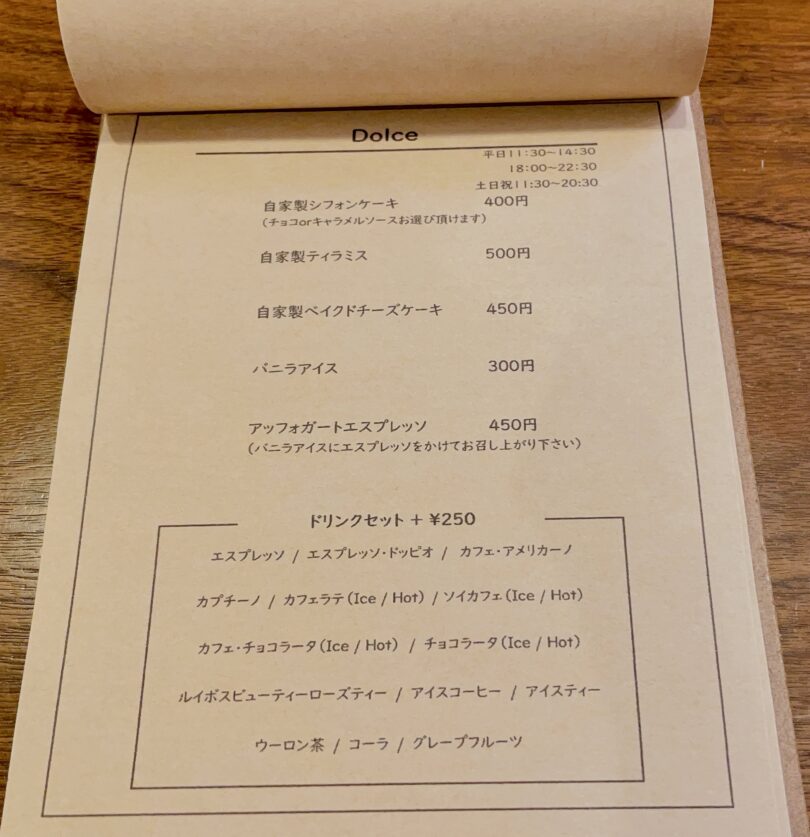 Dolce
平日11:30~14:30
18:00~22:30
土日祝11:30~20:30
自家製シフォンケーキ 400円
(チョコorキャラメルソースお選び頂けます)
自家製ティラミス 500円
自家製ベイクドチーズケーキ 450円
バニラアイス 300円
アッフォガートエスプレッソ 450円
(バニラアイスにエスプレッソをかけてお召し上がり下さい)
ドリンクセット + ¥250
エスプレッソ / エスプレッソ・ドッピオ / カフェ・アメリカーノ
カプチーノ / カフェラテ(Ice / Hot) / ソイカフェ(Ice / Hot)
カフェ・チョコラータ(Ice / Hot) / チョコラータ(Ice / Hot)
ルイボスビューティーローズティー / アイスコーヒー / アイスティー
ウーロン茶 / コーラ / グレープフルーツ